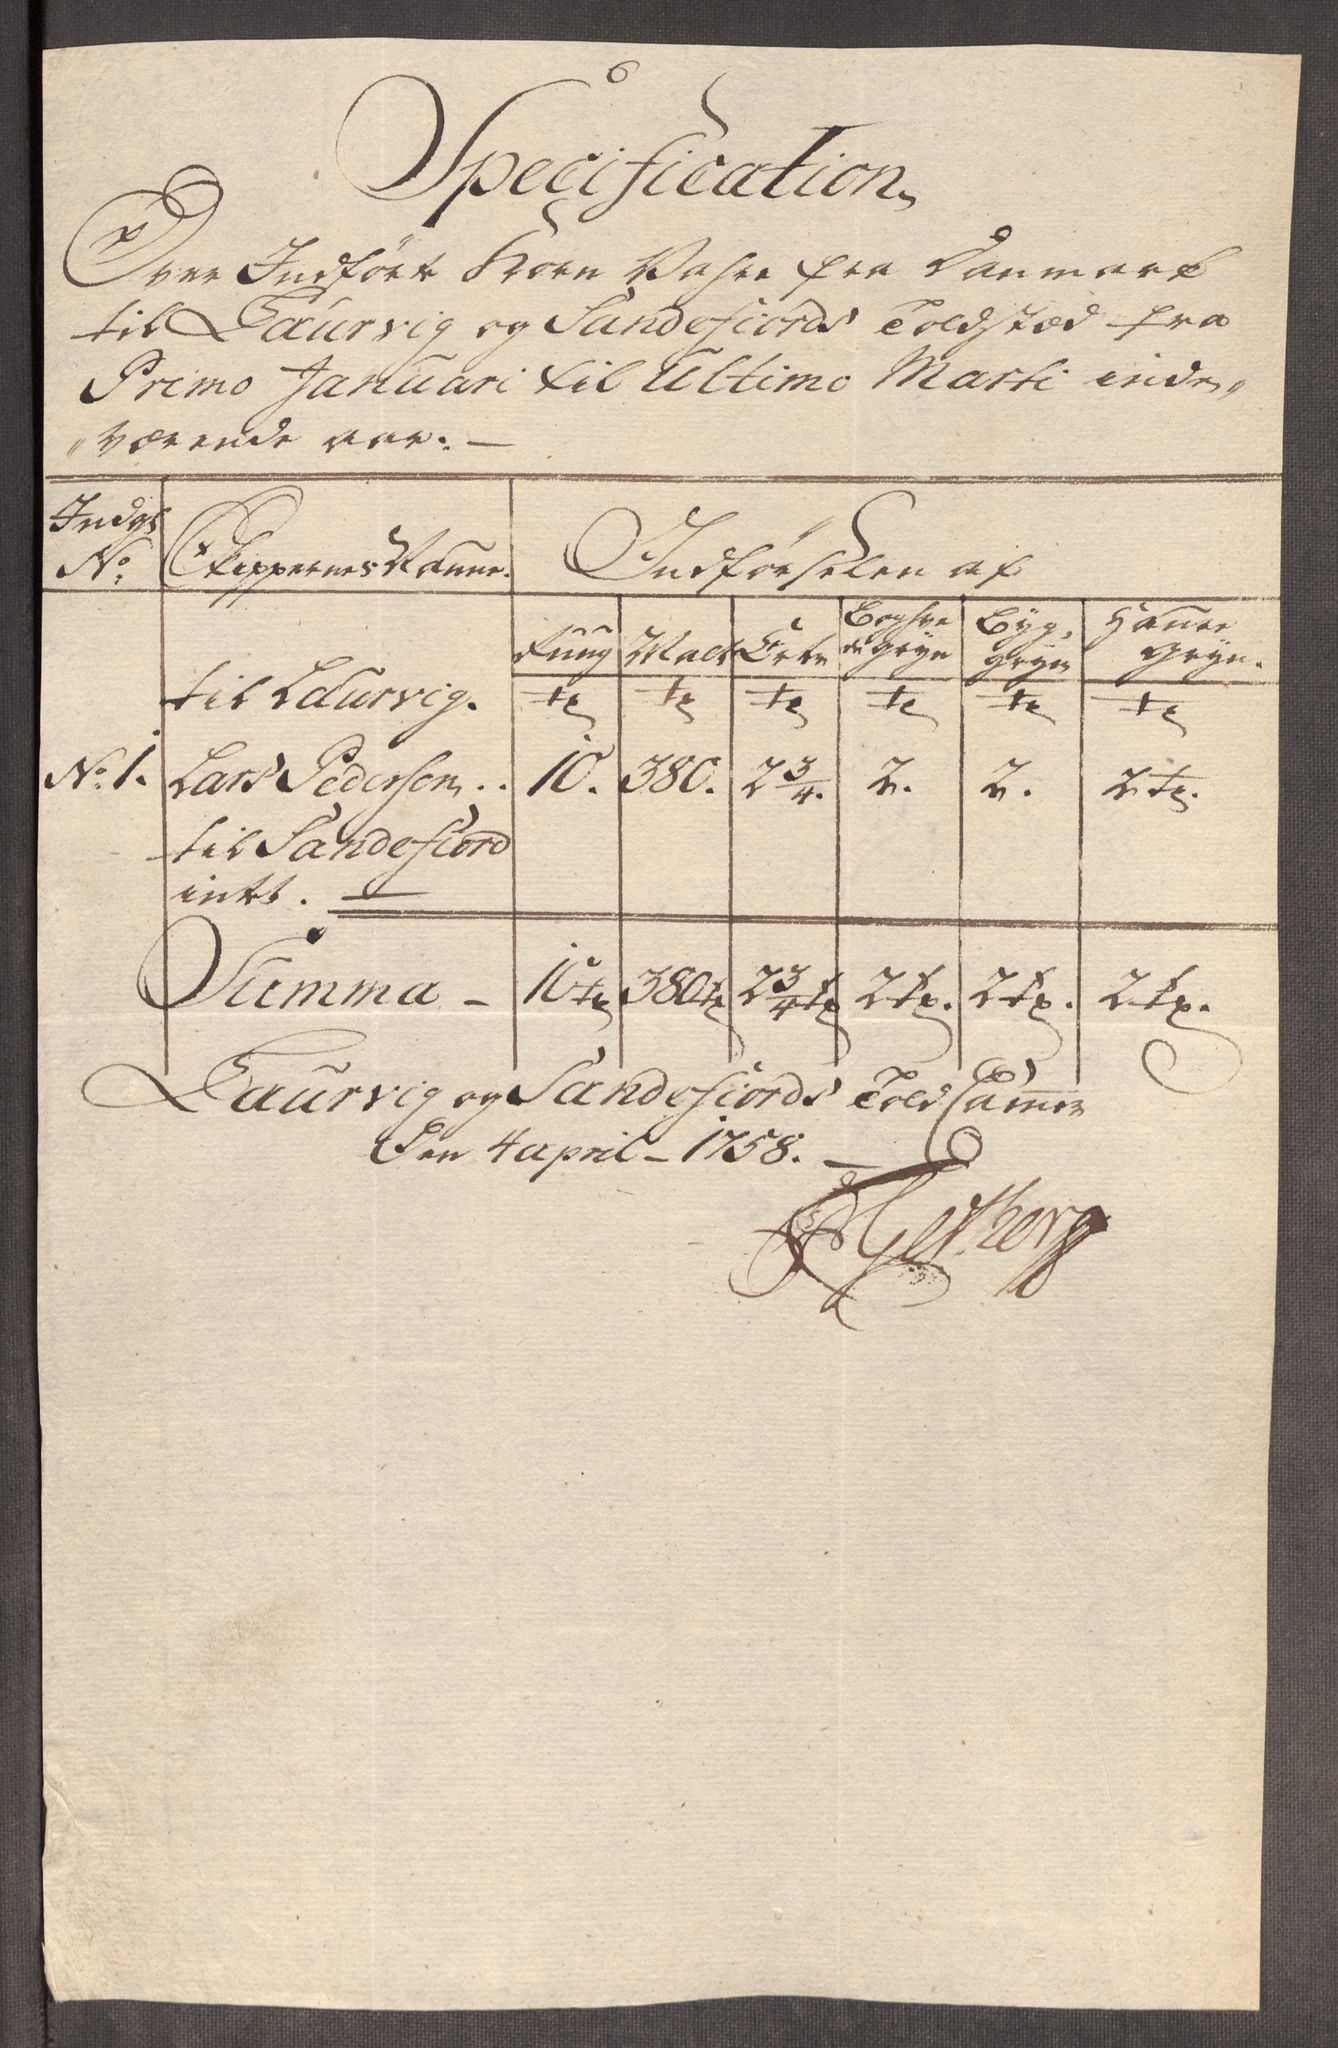 Specification
Over Indført Korn Vahre fra Danmark
til Laurvig og Sandefiords Toldsted fra
Primo Januari til Ultimo Marti inde„
„værende aar. —
Indgs No: Skippernes Nafne. Indførselen af
Rug Malt Erter Boghve de gryn Byg, gryn Hafre gryn.
til Laurvig. tr tr tr tr tr tr
No. 1. Lars Pedersen .. 10. 380. 2 3/4. 2. 2. 2 tr.
til Sandefiord
intet. —
Summa - 10 tr 380 tr 2 3/4 tr 2 tr. 2 tr. 2 tr.
Laurvig og Sandefiords Told Cammer
Den 4 april - 1758. —